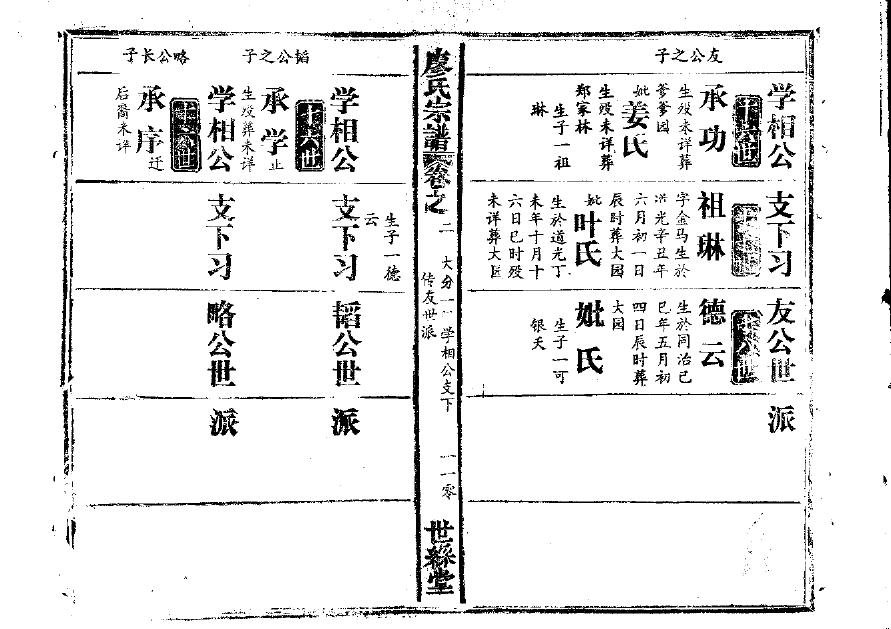 友公之子
学相公
支下习
友公世
派
十六世
承功
生殁未详葬
爹爹园
妣姜氏
生殁未详葬
郑家林
生子一祖
琳
祖琳
字金马生於
洪光辛丑年
六月初一日
辰时葬大园
妣叶氏
生於道光丁
未年十月十
六日巳时殁
未详葬大园
生子一德
云
十八世
德云
生於同治己
巳年五月初
四日辰时葬
大园
妣氏
生子一可
银天
廖氏宗譜
卷之
二
大分一
学相公支下
传友世派
一一零
世綵堂
韬公之子
学相公
支下习
韬公世
派
十六世
承学
止
生殁葬未详
略公长子
学相公
支下习
略公世
派
十六世
承序
迁
后裔未详